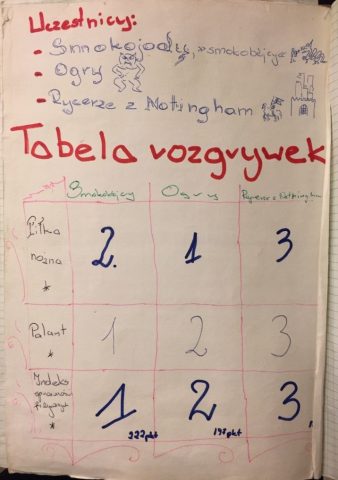 Uczestnicy:
- Smokojady, "smokobójcy
- Ogry
- Rycerze z Nottingham
Tabela rozgrywek
Smokobójcy Ogry Rycerze z Nottingham
Piłka nożna * 2. 1 3
Palant * 1 2 3
Indeks sprawności fizycznej * 1 222pkt 2 3.